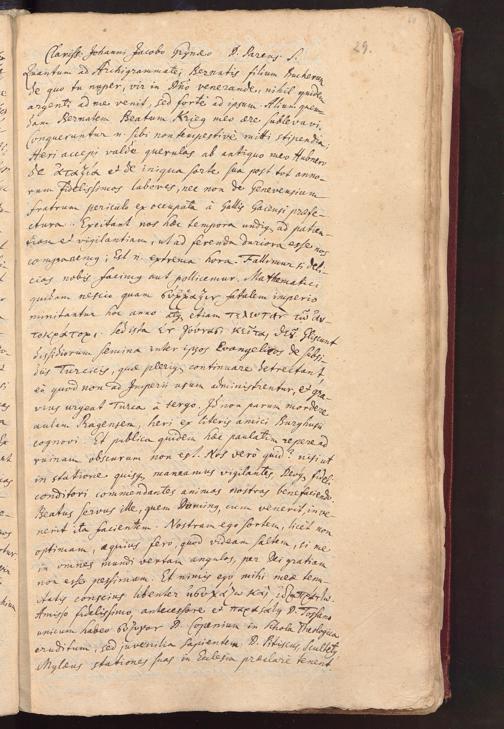 29.
Clariss. Johanni Jacobo Grynæo D. Pareus. S.
Quantum ad Archigrammatei Bernatis filium Bucherum
de quo tu nuper, vir in Dño venerande, nihil quidem
argenti ad me venit, sed forte ad ipsum. Alium quen-
dam Bernatem Beatum Krieg meo ære sublevavi.
Conqueruntur n. sibi non tempestive mitti stipendia;
Heri accepi valde querulas ab antiquo meo Hubnero
de ἀταξία et de iniqua sorte sua post tot anno-
rum fidelissimos labores, nec non de Genevensium
fratrum periculis ex occupata à Gallis Gaiensi præfe-
ctura. Excitant nos hæc tempora undiq, ad patien-
tiam et vigilantiam, ut ad ferenda duriora esse nos
comparemq; Est n. extrema hora. Fallimur si deli-
cias nobis facimq aut pollicemur. Mathematici
quidam nescio quam fatalem imperio
minitantur hoc anno atq etiam τελευτὴν τῶ αὐ-
τοκράτορι, sed ista ἐν γούνασι κεῖται Gliscunt
dissidiorum semina inter ipsos Evangelicos de subsi-
diis Turcicis, quæ pleriq; continuare detrectant,
eò quod non ad Imperii usum administrentur, et gra-
vius urgeat Turca à tergo. Id non parum mordere
aulam Pragensem, heri ex literis amici Burghusii
cognovi. Et publica quidem hæc paulatim repere ad
ruinam obscurum non est. Nos verò quid? nisi ut
in statione quisq; maneamus vigilantes, Deoq; fideli
conditori commendantes animas nostras benefaciendo
Beatus servus ille, quem Dominq, cum venerit, inve-
nerit ita facientem. Nostram ego sortem, licet non
optimam, æquius fero, quod videam saltem, si me
in omnes mundi vertam angulos, per Dei gratiam
non esse pessimam. Et nimis ego mihi meæ tem-
conscius libenter ἡσυχάζω καὶ
Amisso fidelissimo antecessore et D. Tossano
unicum habeo σύζυγον D. Copenium in Schola Theologica
eruditum, sed juvenilia sapientem. D. Pitiscus, Scultetq
Myleus stationes suas in Ecclesia præclare tenent